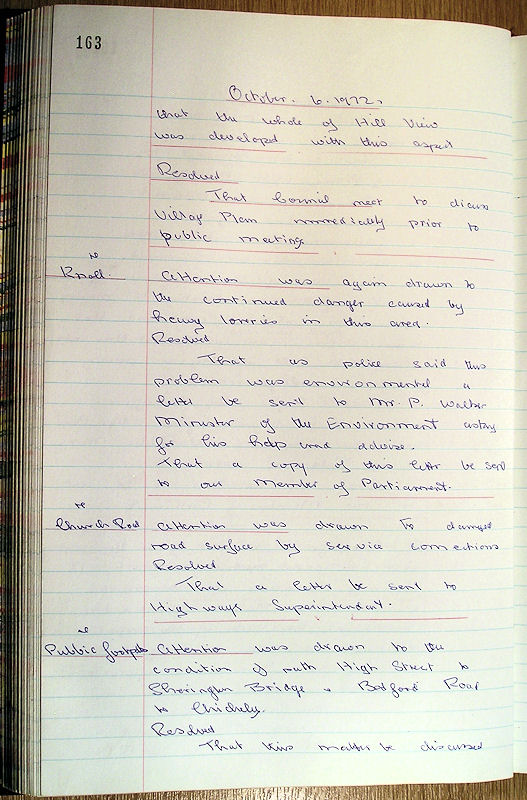 163
October. 6. 1972.
that the whole of Hill View
was developed with this aspect
Resolved
That Council meet to discuss
Village Plan immediately prior to
public meeting
re
Knoll. Attention was again drawn to
the continued danger caused by
heavy lorries in this area.
Resolved
That as police said this
problem was environmental a
letter be sent to Mr. P. Walker
Minister of the Environment asking
for his help and advise.
That a copy of this letter be sent
to our Member of Parliament.
re
Church Road Attention was drawn to damaged
road surface by service connections
Resolved
That a letter be sent to
Highways Superintendent.
re
Public footpaths Attention was drawn to the
condition of path High Street to
Sherington Bridge & Bedford Road
to Chicheley.
Resolved
That this matter be discussed